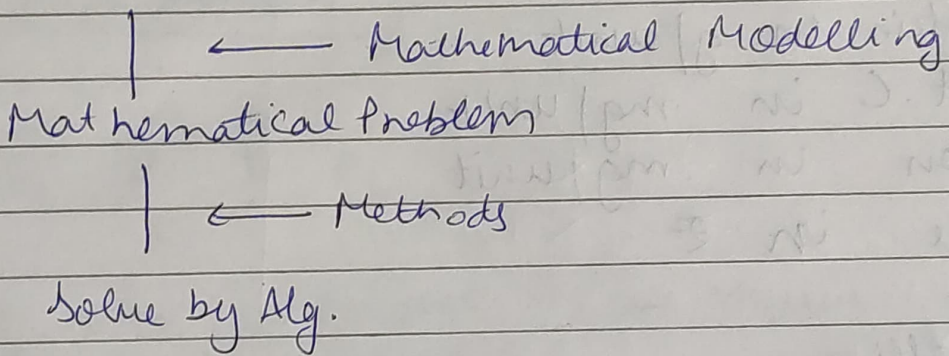 ← Mathematical Modelling
Mathematical Problem
← Methods
Solve by Alg.